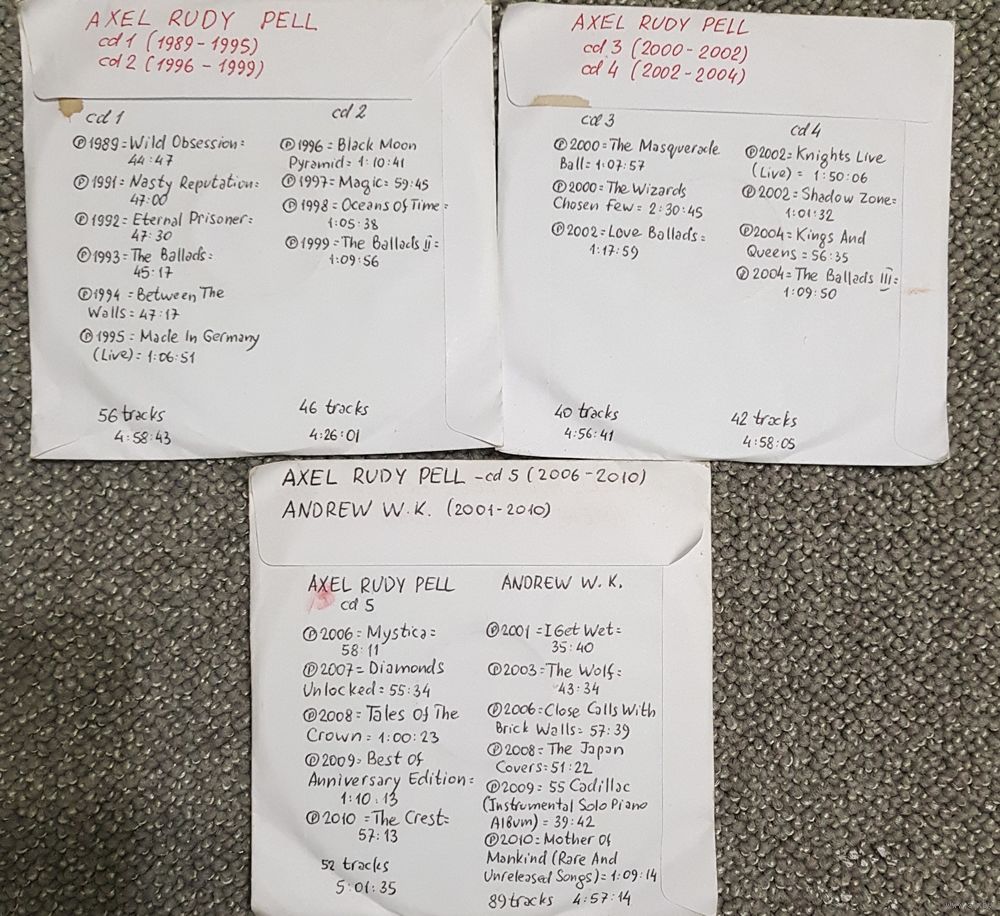 AXEL RUDY PELL
cd 1 (1989-1995)
cd 2 (1996-1999)
cd 1
Ⓟ1989=Wild Obsession=
44:47
Ⓟ1991=Nasty Reputation=
47:00
Ⓟ1992=Eternal Prisoner=
47:30
Ⓟ1993=The Ballads=
45:17
Ⓟ1994=Between The
Walls=47:17
Ⓟ1995=Made In Germany
(Live)=1:06:51
56 tracks
4:58:43
cd 2
Ⓟ1996=Black Moon
Pyramid=1:10:41
Ⓟ1997=Magic=59:45
Ⓟ1998=Oceans Of Time=
1:05:38
Ⓟ1999=The Ballads II=
1:09:56
46 tracks
4:26:01
AXEL RUDY PELL
cd 3 (2000-2002)
cd 4 (2002-2004)
cd 3
Ⓟ2000=The Masquerade
Ball=1:07:57
Ⓟ2000=The Wizards
Chosen Few=2:30:45
Ⓟ2002=Love Ballads=
1:17:59
40 tracks
4:56:41
cd 4
Ⓟ2002=Knights Live
(Live)=1:50:06
Ⓟ2002=Shadow Zone=
1:01:32
Ⓟ2004=Kings And
Queens=56:35
Ⓟ2004=The Ballads III=
1:09:50
42 tracks
4:58:05
AXEL RUDY PELL -cd 5 (2006-2010)
ANDREW W.K. (2001-2010)
AXEL RUDY PELL
cd 5
Ⓟ2006=Mystica=
58:11
Ⓟ2007=Diamonds
Unlocked=55:34
Ⓟ2008=Tales Of The
Crown=1:00:23
Ⓟ2009=Best Of
Anniversary Edition=
1:10:13
Ⓟ2010=The Crest=
57:13
52 tracks
5:01:35
ANDREW W.K.
Ⓟ2001=I Get Wet=
35:40
Ⓟ2003=The Wolf=
43:34
Ⓟ2006=Close Calls With
Brick Walls=57:39
Ⓟ2008=The Japan
Covers=51:22
Ⓟ2009=55 Cadillac
(Instrumental Solo Piano
Album)=39:42
Ⓟ2010=Mother Of
Mankind (Rare And
Unreleased Songs)=1:09:14
89 tracks 4:57:14